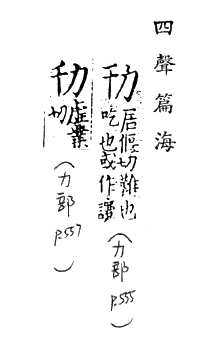 四聲篇海
居偃切難也
吃也或作
(力部 p.555)
虛業
切
(力部 p.557)